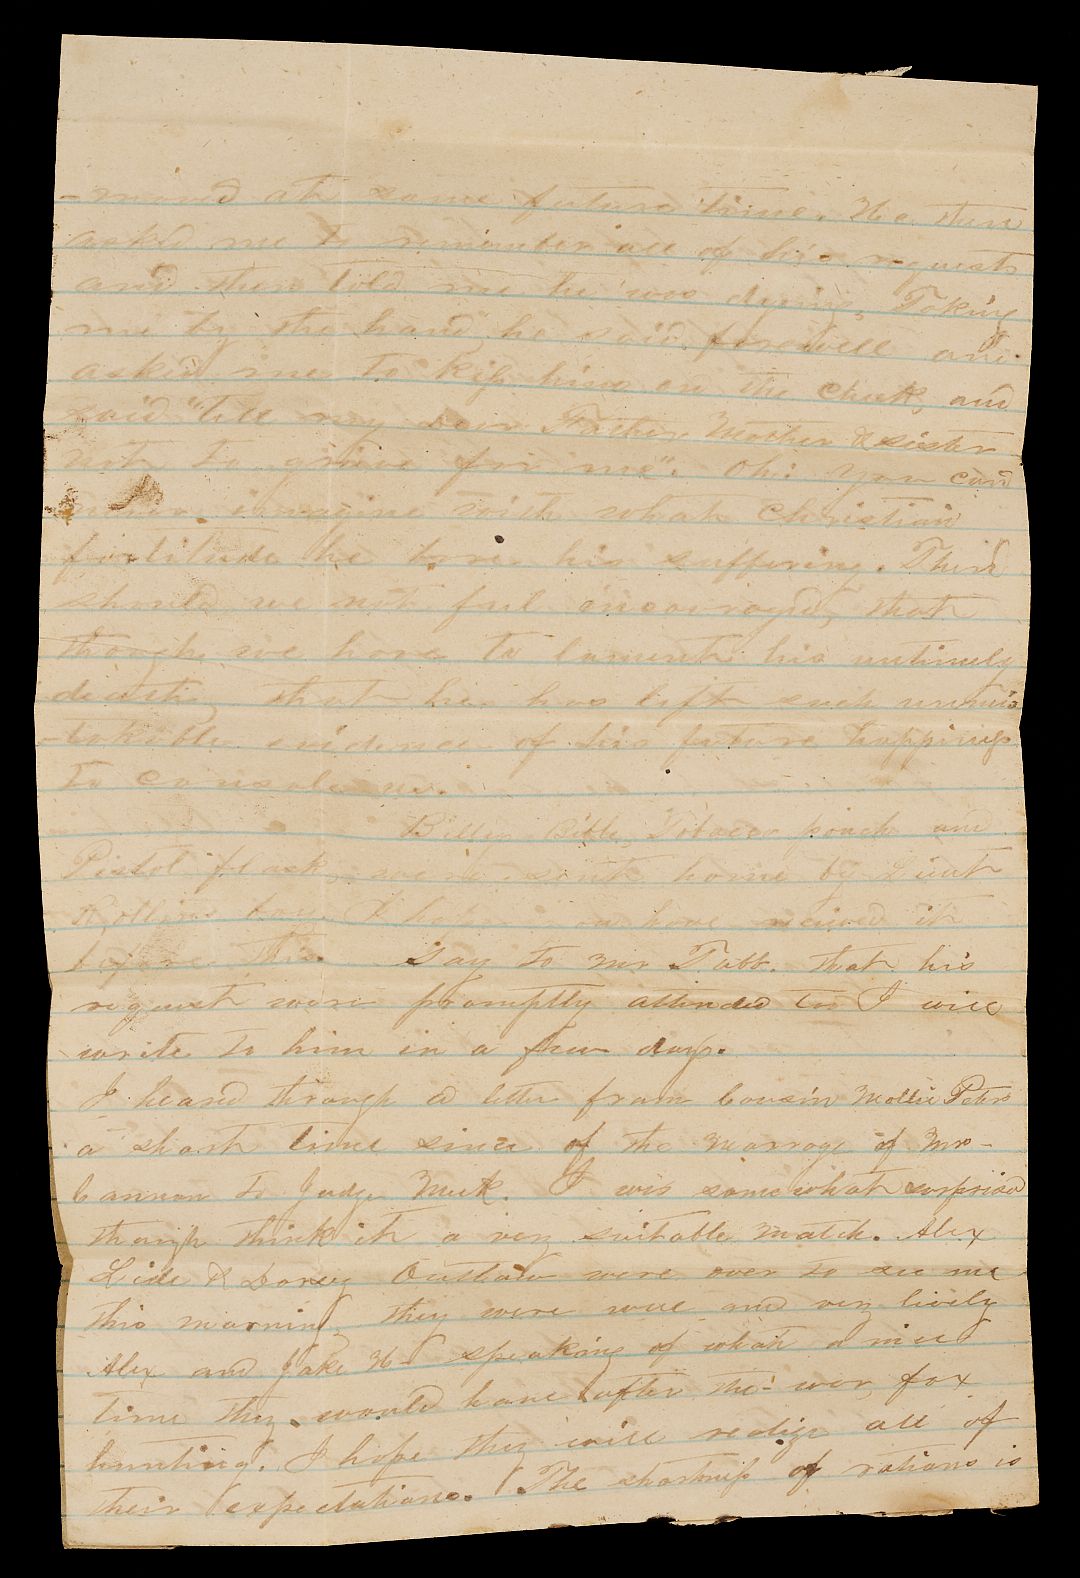 -moved at some future time. He then
asked me to remember all of his requests
and then told me he was dying. Taking
me by the hand he said farewell and
asked me to kiss him on the cheek, and
said "tell my dear Father Mother & sister
not to grieve for me". Oh! you can
never imagine with what christian
fortitude he bore his suffering. Then
should we not feel encouraged, that
though we have to lament his untimely
death, that he has left such unmis
-takable evidence of his future happiness
to console us.
Billys Bible, Tobacco pouch and
Pistol flask, were sent home by Lieut
Rollins boy. I hope you have recieved it
before this. Say to Mr Tabb. that his
request were promptly attended to I will
write to him in a few days.
I heard through a letter from Cousin Mollie Peters
a short time since of the Marrage of Mrs-
Cannon to Judge Meek. I was somewhat surprised
though think it a very suitable match. Alex
Lide & Dorsey Outlaw were over to see me
this morning they were well and very lively
Alex and Jake H- speaking of what a nice
time they would have after the war, fox
hunting. I hope they will realize all of
their expectations. The shortness of rations is